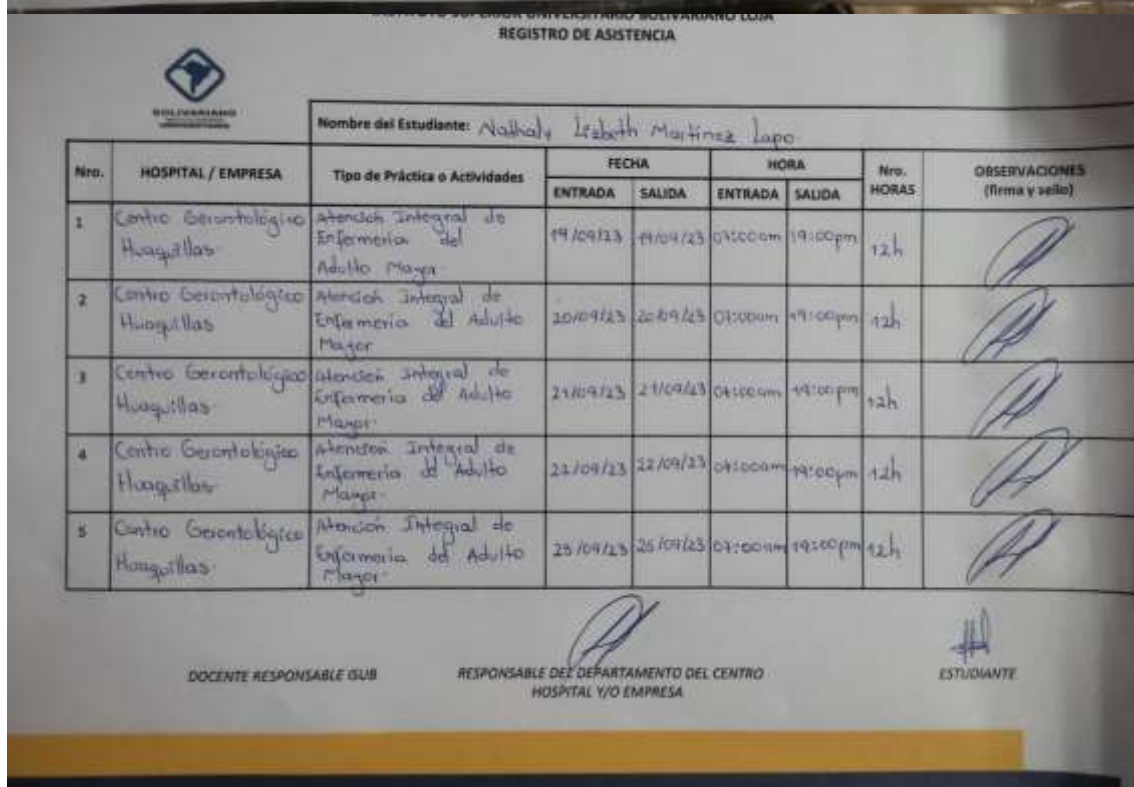 INSTITUTO SUPERIOR UNIVERSITARIO BOLIVARIANO LOJA
REGISTRO DE ASISTENCIA
BOLIVARIANO
Nombre del Estudiante: Nathaly Lizbeth Martinez Lapo
Nro. HOSPITAL / EMPRESA Tipo de Práctica o Actividades FECHA HORA Nro. HORAS OBSERVACIONES (firma y sello)
ENTRADA SALIDA ENTRADA SALIDA
1 Centro Gerontológico Huaquillas Atención Integral de Enfermeria del Adulto Mayor. 19/09/23 19/09/23 07:00am 19:00pm 12h
2 Centro Gerontológico Huaquillas Atención Integral de Enfermeria del Adulto Mayor 20/09/23 20/09/23 07:00am 19:00pm 12h
3 Centro Gerontológico Huaquillas Atención Integral de Enfermeria del Adulto Mayor. 21/09/23 21/09/23 07:00am 19:00pm 12h
4 Centro Gerontológico Huaquillas Atención Integral de Enfermeria del Adulto Mayor. 22/09/23 22/09/23 07:00am 19:00pm 12h
5 Centro Gerontológico Huaquillas Atención Integral de Enfermeria del Adulto Mayor. 25/09/23 25/09/23 07:00am 19:00pm 12h
DOCENTE RESPONSABLE ISUB
RESPONSABLE DEL DEPARTAMENTO DEL CENTRO
HOSPITAL Y/O EMPRESA
ESTUDIANTE